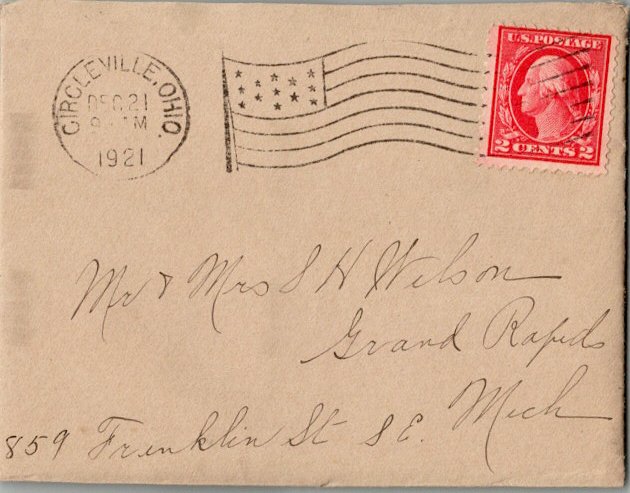 CIRCLEVILLE, OHIO.
DEC 21
9 AM
1921
U.S. POSTAGE
2 CENTS 2
Mr & Mrs S H Wilson
Grand Rapids
Mich
859 Franklin St S E.